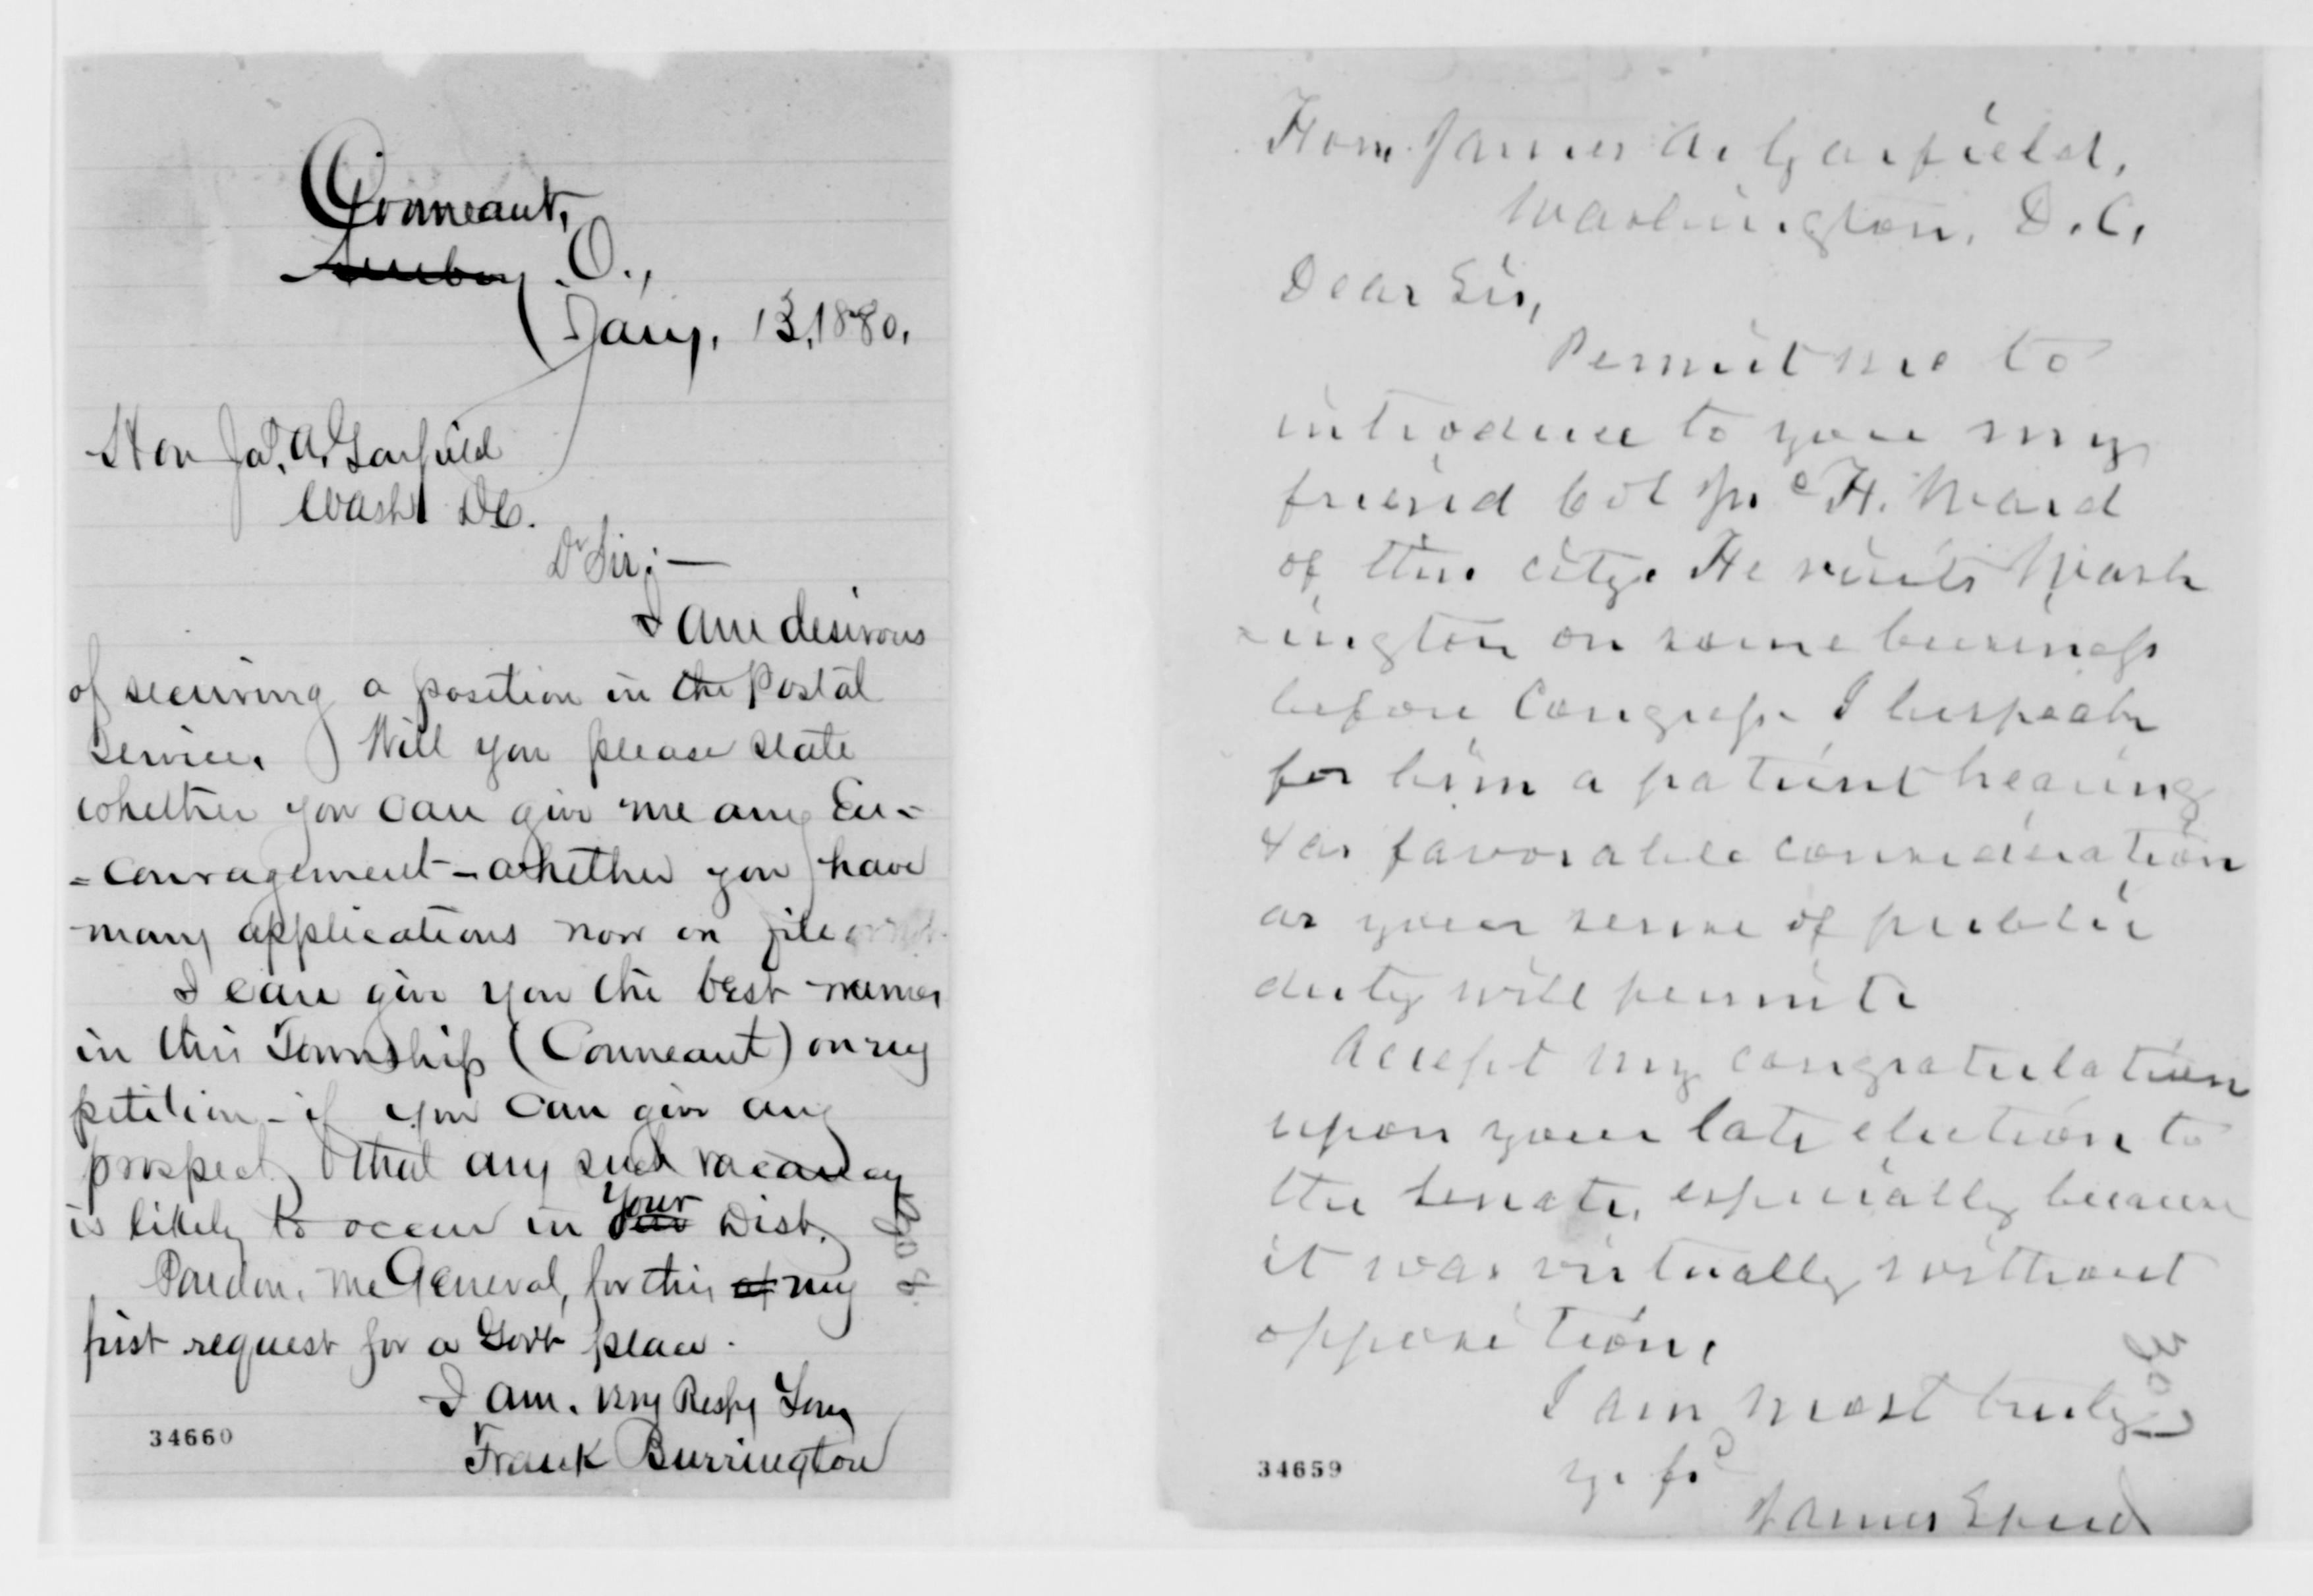 Conneaut,
Amboy O.,
Jany. 13, 1880.
Hon Jas. A. Garfield
Wash DC.
Dr Sir:—
I am desirous
of securing a position in the Postal
Service. Will you please state
whether you can give me any En=
=couragement – whether you have
many applications now on file or not.
I can give you the best names
in this Township (Conneaut) on my
petition – if you can give any
prospect that any such vacancy
is likely to occur in your Dist.
Pardon me General, for this of my
first request for a Govt place.
I am. Very Respy Yours
Frank Burrington
34660
Hon. James A. Garfield,
Washington, D.C.
Dear Sir,
Permit me to
introduce to you my
friend Col H. Ward
of this city. He visits Wash
-ington on some business
before Congress I bespeak
for him a patient hearing
& as favorable consideration
as your sense of public
duty will permit.
Accept my congratulation
upon your late election to
the Senate, especially because
it was virtually without
opposition.
I am most truly
yr fd
James Speed
34659